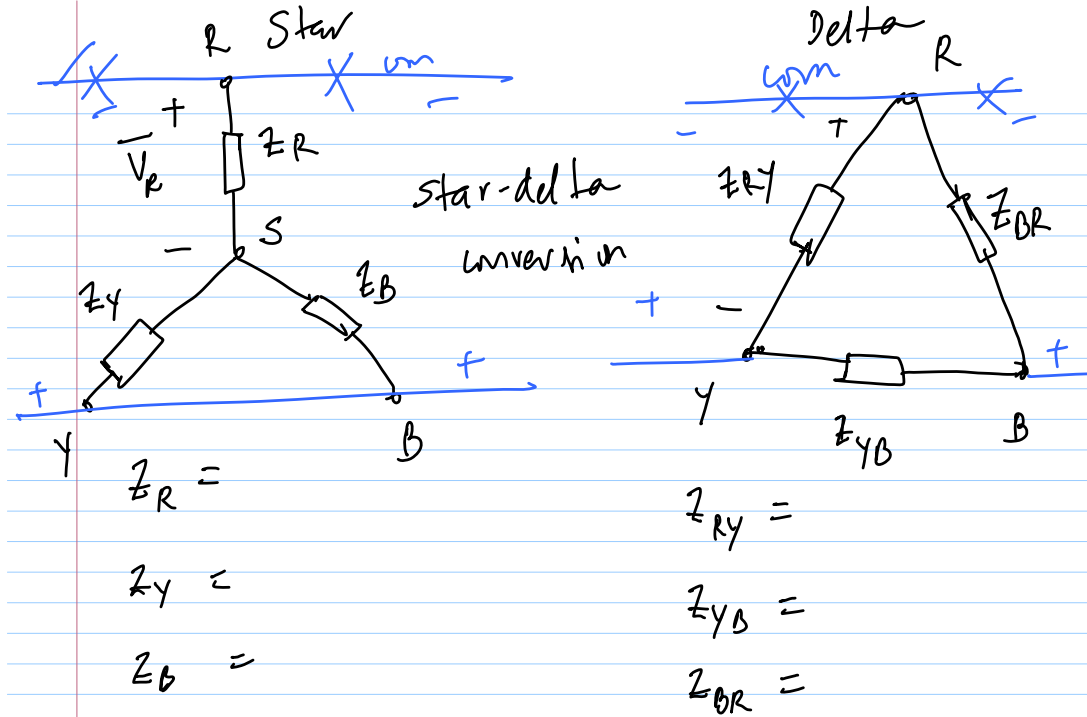 R Star
com
+
-
-
V_R
Z_R
S
-
Z_Y
Z_B
+
+
Y
B
Z_R =
Z_Y =
Z_B =
star-delta
conversion
Delta
R
com
-
+
-
Z_RY
Z_BR
+
-
+
Y
Z_YB
B
Z_RY =
Z_YB =
Z_BR =